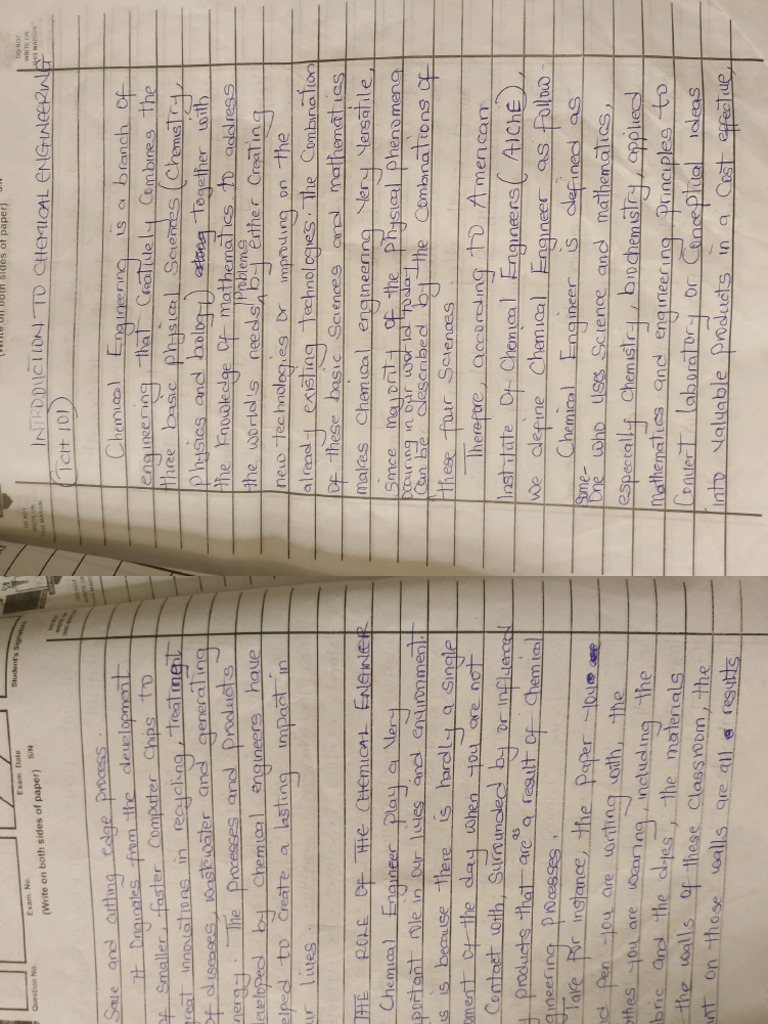 INTRODUCTION TO CHEMICAL ENGINEERING
(TCH 101)
Chemical Engineering is a branch of
engineering that Creatively Combines the
three basic physical Sciences (Chemistry,
Physics and biology) together with
the Knowledge of mathematics to address
the world's needs/Problems by either Creating
new technologies or improving on the
already existing technologies. The Combination
of these basic Sciences and mathematics
makes Chemical engineering Very Versatile,
Since majority of the Physical phenomena
occuring in our world today
Can be described by the Combinations of
these four Sciences.
Therefore, according to American
Institute of Chemical Engineers (AIChE),
we define Chemical Engineer as follow.
Chemical Engineer is defined as
Some-
One who uses Science and mathematics,
especially Chemistry, biochemistry, applied
Mathematics and engineering Principles to
Convert laboratory or Conceptual ideas
into Valuable Products in a Cost effective,
DO NOT
WRITE ON
THIS MARGIN
(Write on both sides of paper)
S/N
Question No.
Exam. No.
Exam. Date
Student's Signature
(Write on both sides of paper)
S/N
Safe and cutting edge process.
It Originates from the development
of smaller, faster Computer Chips to
great innovations in recycling, treatment
of diseases, wastewater and generating
energy. The Processes and products
developed by Chemical engineers have
helped to Create a lasting impact in
our lives.
THE ROLE OF THE CHEMICAL ENGINEER
Chemical Engineer play a Very
portant role in our lives and environment.
is is because there is hardly a single
oment of the day when you are not
Contact with, Surrounded by or influenced
y products that are as a result of Chemical
gineering processes.
Take for instance, the Paper you are
nd pen you are writing with, the
othes you are wearing, including the
bric and the dyes, the materials
the walls of these Classroom, the
int on those walls are all results